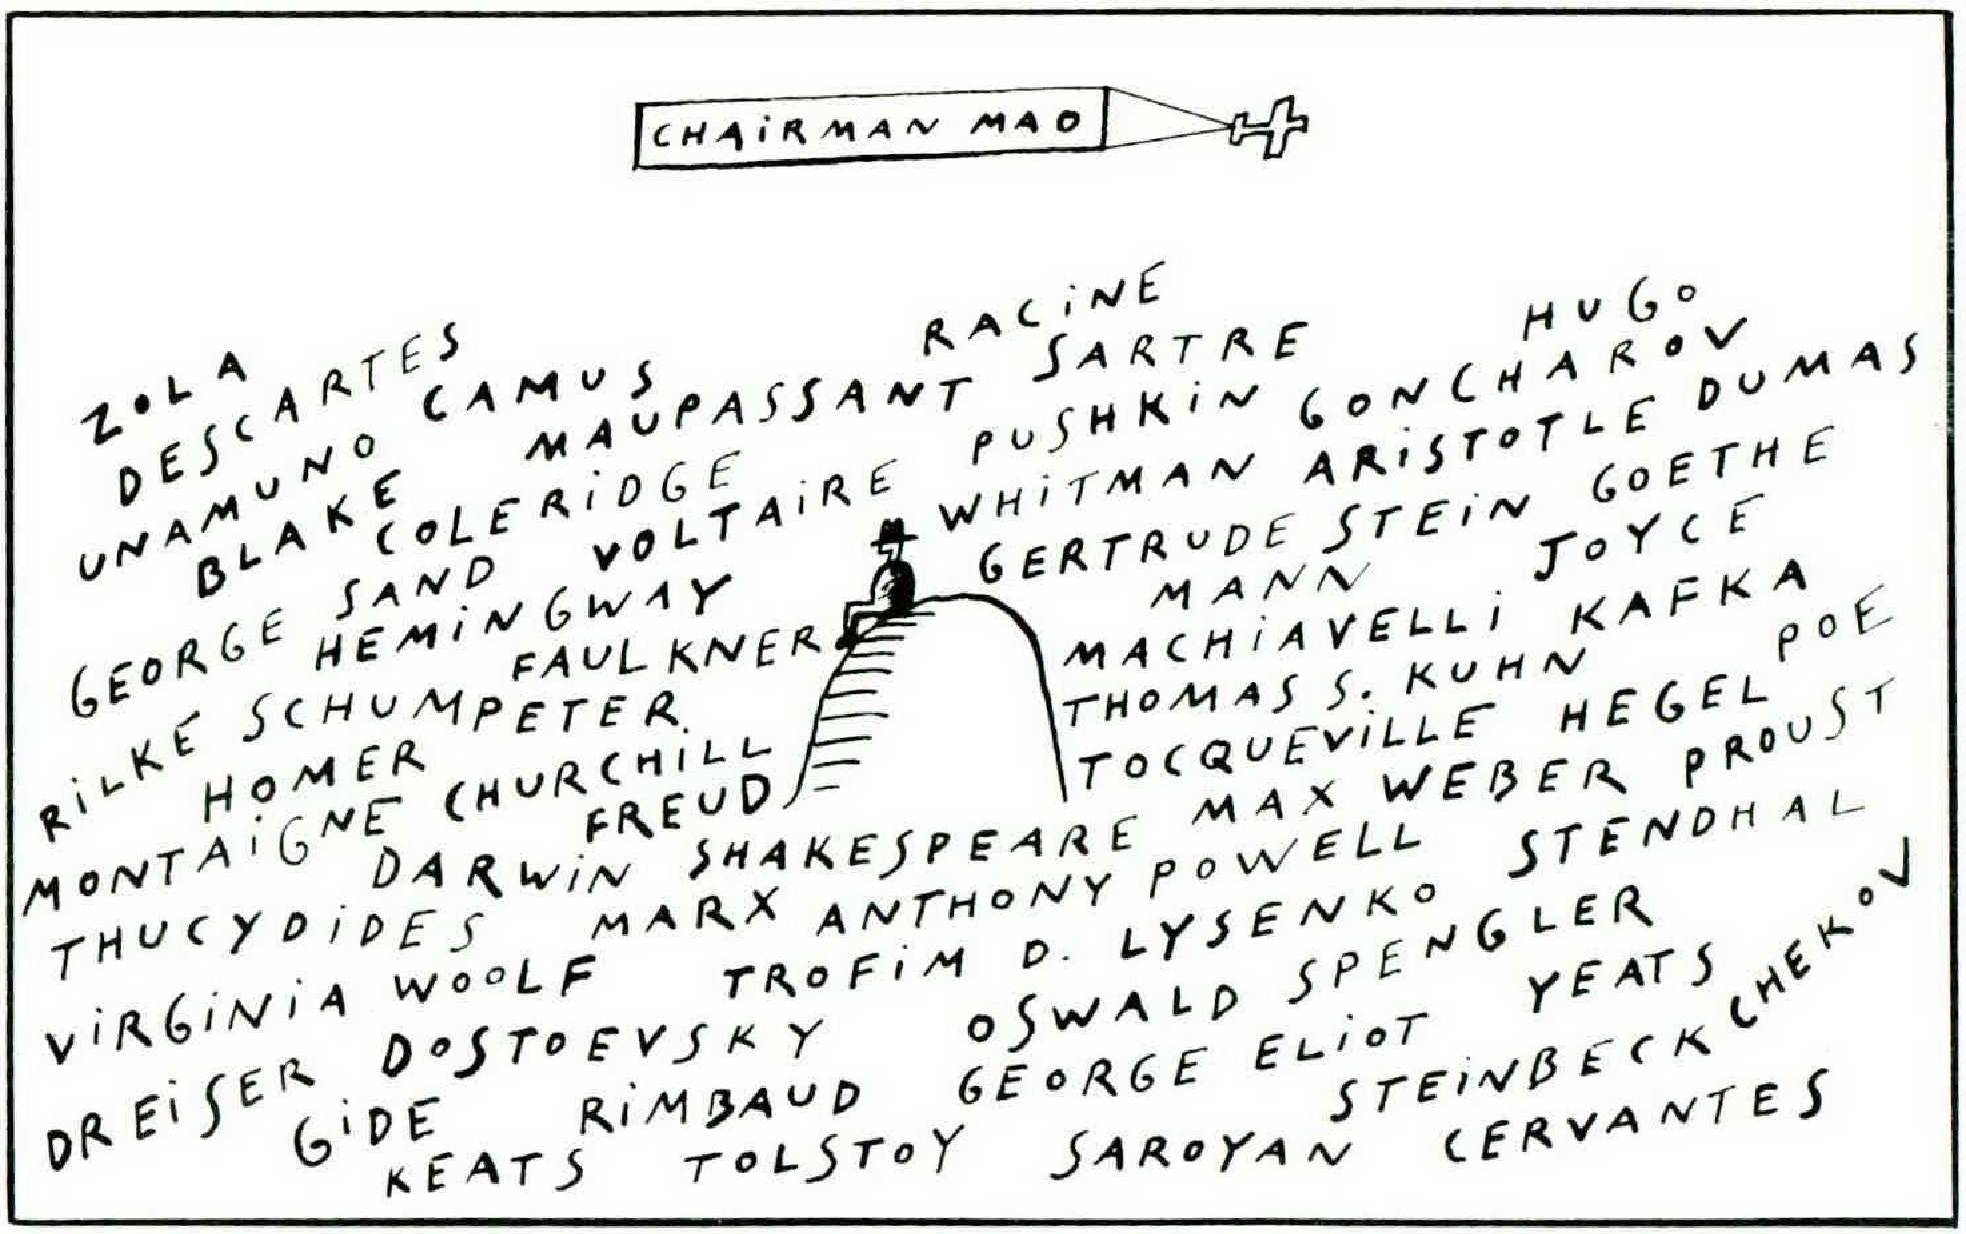 CHAiRMAN MAO
RACiNE
HUGO
ZOLA
DESCARTES
CAMUS
SARTRE
UNAMUNO
MAUPASSANT
PUSHKiN
GONCHAROV
DUMAS
BLAKE
COLERiDGE
VOLTAiRE
WHiTMAN
ARiSTOTLE
GEORGE SAND
GERTRUDE STEiN
GOETHE
HEMiNGWAY
MANN
JOYCE
FAULKNER
MACHiAVELLi
KAFKA
RiLKE
SCHUMPETER
THOMAS S. KUHN
POE
HOMER
CHURCHiLL
TOCQUEViLLE
HEGEL
MONTAiGNE
FREUD
MAX WEBER
PROUST
DARWiN
SHAKESPEARE
THUCYDiDES
MARX
ANTHONY POWELL
STENDHAL
ViRGiNiA WOOLF
TROFiM D. LYSENKO
OSWALD SPENGLER
CHEKOV
DREiSER
DOSTOEVSKY
GEORGE ELiOT
YEATS
GiDE
RiMBAUD
STEiNBECK
KEATS
TOLSTOY
SAROYAN
CERVANTES